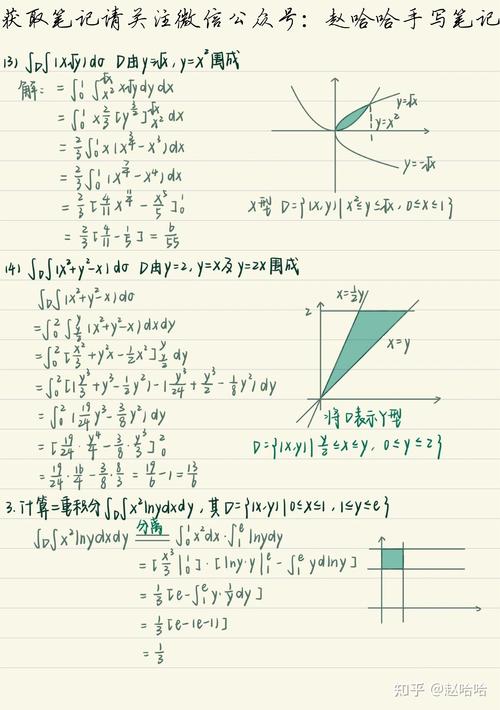 获取笔记请关注微信公众号：赵哈哈手写笔记
(3) ∫_D∫ x√y dσ D由y=√x, y=x²围成
解: = ∫₀¹ ∫_{x²}^{√x} x√y dy dx
= ∫₀¹ x 2/3 [y^{3/2}]_{x²}^{√x} dx
= 2/3 ∫₀¹ x(x^{3/4} - x³) dx
= 2/3 ∫₀¹ (x^{7/4} - x⁴) dx
= 2/3 [4/11 x^{11/4} - x⁵/5]₀¹
= 2/3 [4/11 - 1/5] = 6/55
y=√x
y=x²
y=-√x
X型 D={(x,y)|x²≤y≤√x, 0≤x≤1}
(4) ∫_D∫ (x²+y²-x) dσ D由y=2, y=x及y=2x围成
∫_D∫ (x²+y²-x) dσ
= ∫₀² ∫_{y/2}^{y} (x²+y²-x) dx dy
= ∫₀² [x³/3 + y²x - 1/2 x²]_{y/2}^{y} dy
= ∫₀² [(y³/3 + y³ - 1/2 y²) - (y³/24 + y³/2 - 1/8 y²)] dy
= ∫₀² (19/24 y³ - 3/8 y²) dy
= [19/24 · y⁴/4 - 3/8 · y³/3]₀²
= 19/24 · 16/4 - 3/8 · 8/3 = 19/6 - 1 = 13/6
x=½y
2
x=y
将D表示Y型
D={(x,y)|y/2≤x≤y, 0≤y≤2}
3. 计算二重积分∫_D∫ x² lny dx dy, 其D={(x,y)|0≤x≤1, 1≤y≤e}
∫_D∫ x² lny dx dy 分离 ∫₀¹ x² dx · ∫₁ᵉ lny dy
= [x³/3 |₀¹] · [lny·y |₁ᵉ - ∫₁ᵉ y dlny]
= 1/3 [e - ∫₁ᵉ y · 1/y dy]
= 1/3 [e-(e-1)]
= 1/3
知乎 @赵哈哈